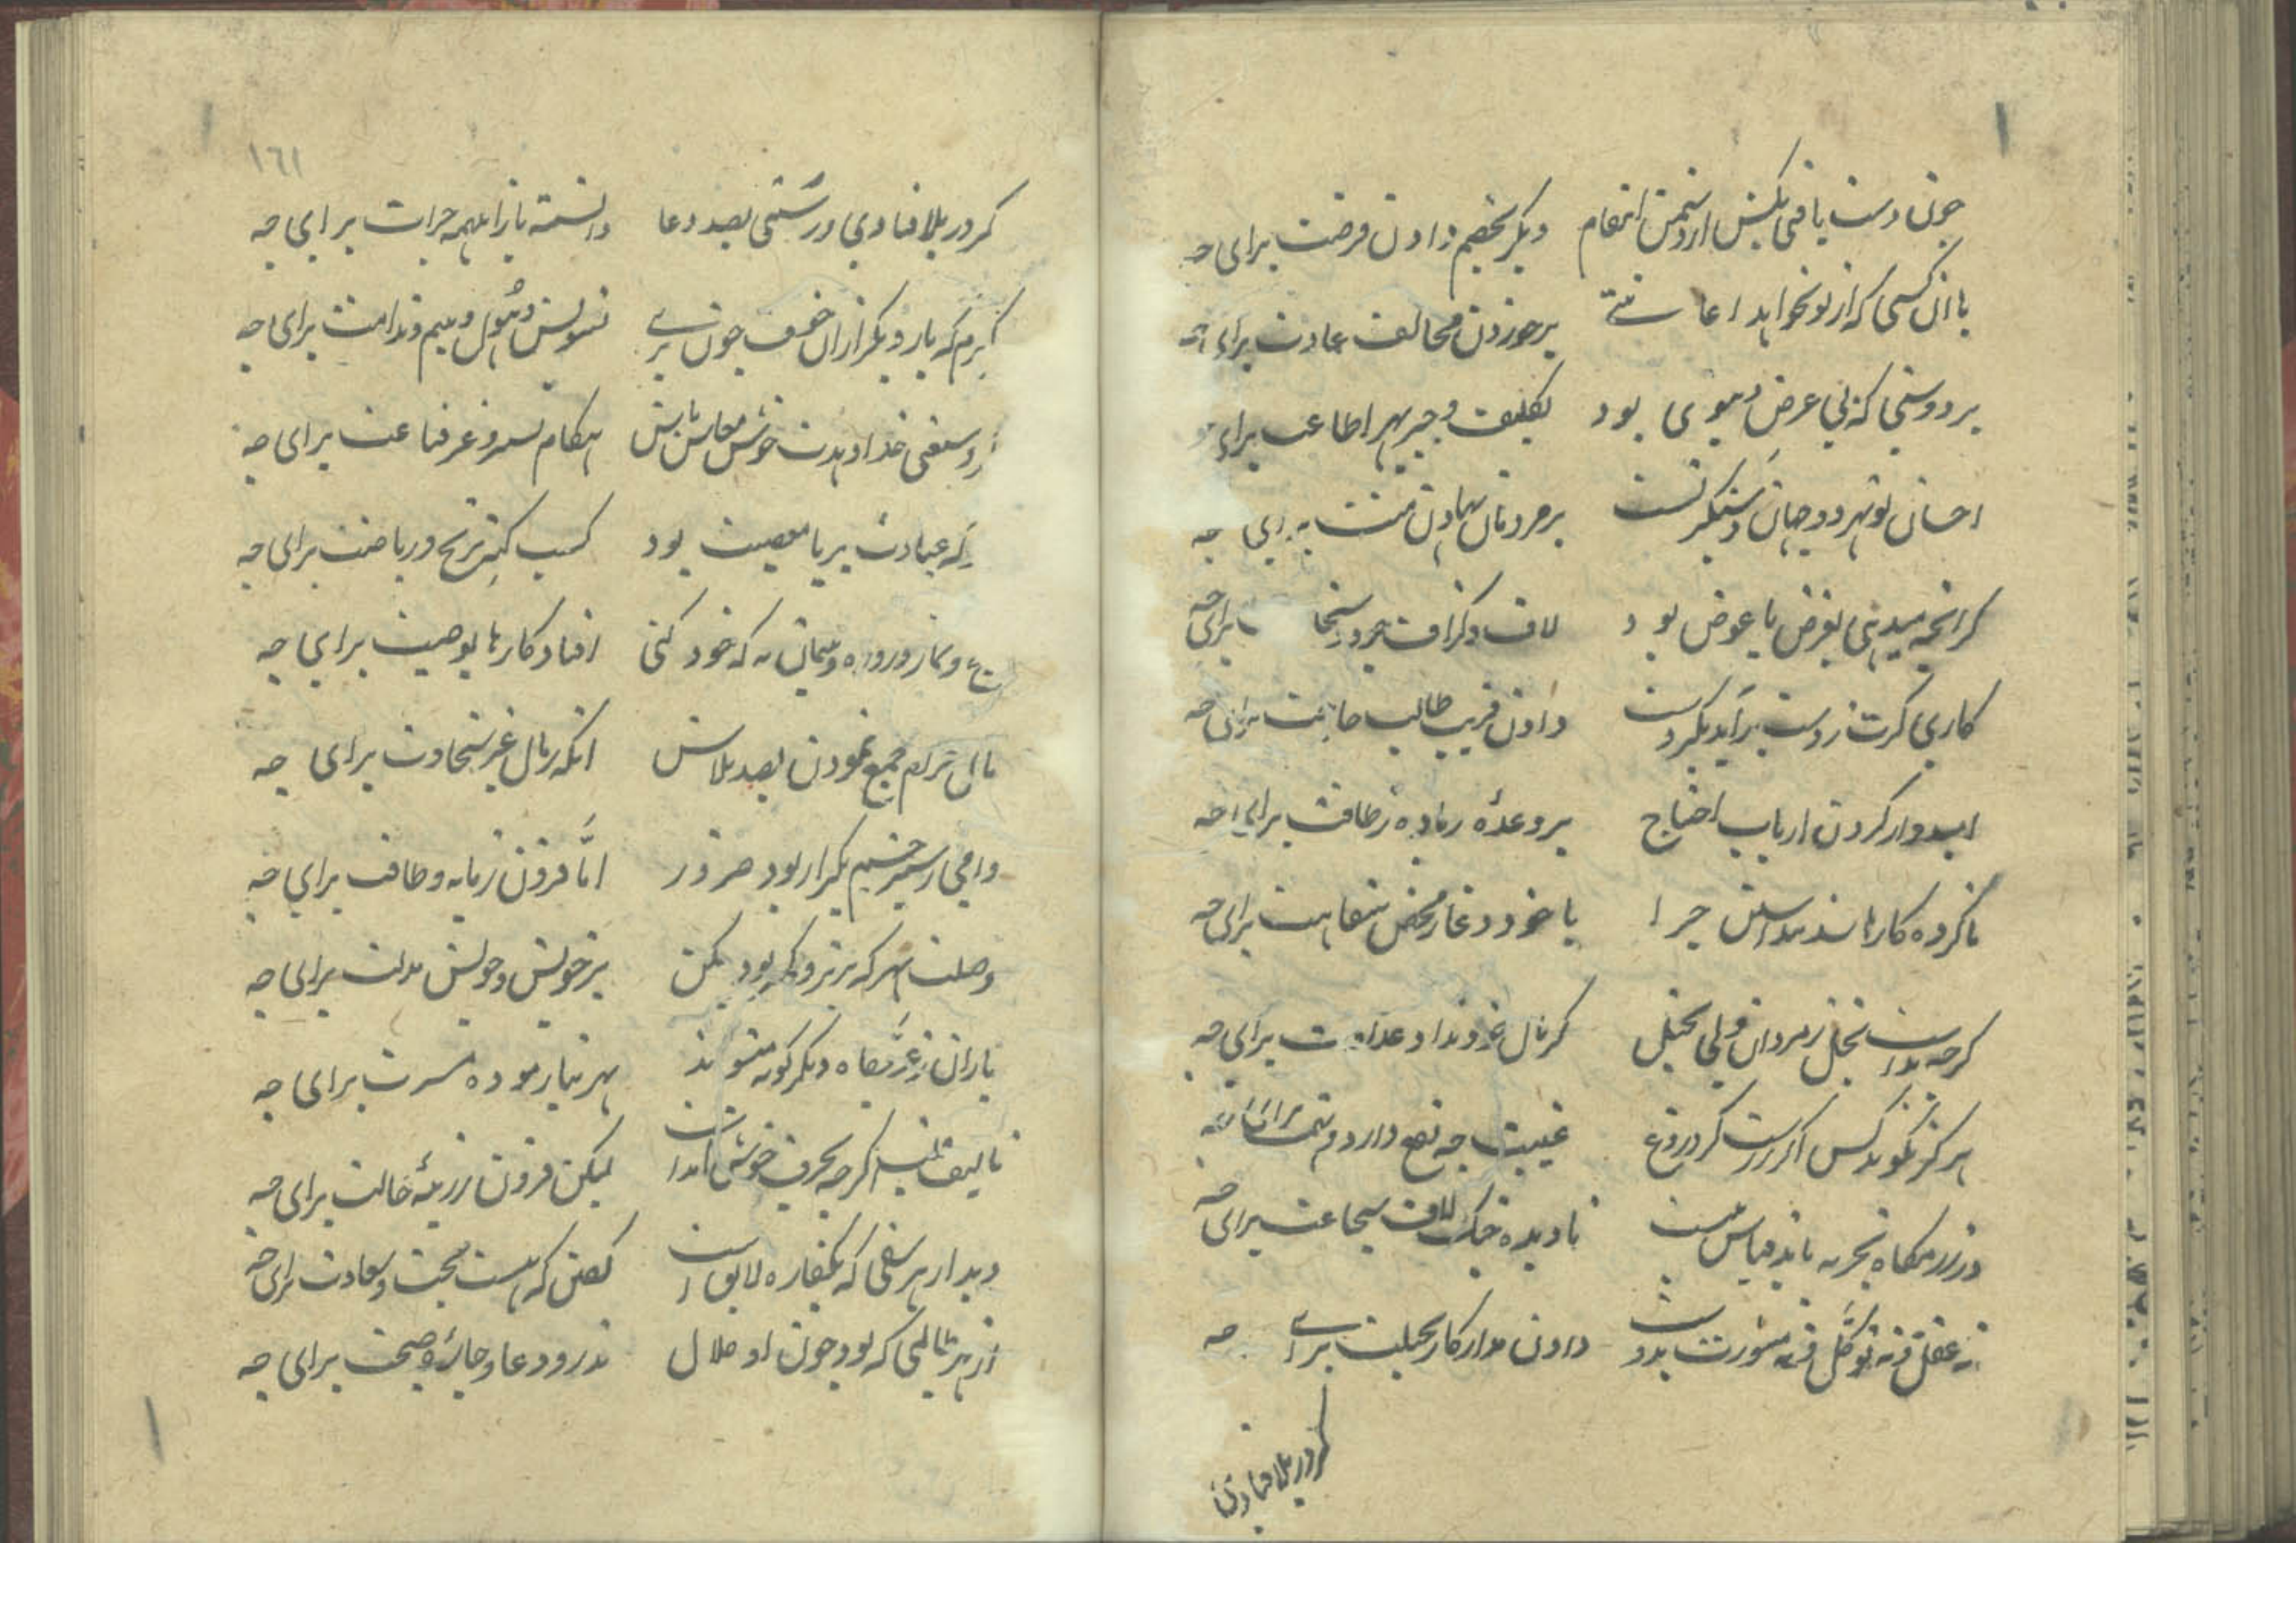 چون دست یافتی بکش از دشمن انتقام دیگر بخصم دادن فرصت برای چه
با آن کسی که از تو نخواهد اعانتی برخوردن مخالف عادت برای چه
بر دوستی که بی عرض و بیوی بود تکلیف و جبر بهر اطاعت برای
احسان تو بهر دو جهان دستگیر تست بر مردمان نهادن منت برای چه
کر انچه میدهی بغرض یا عوض بود لاف و کزاف جود و سخا برای چه
کاری کرت ز دست برآید بکن درست دادن فریب طالب حاجت برای چه
امیدوار کردن ارباب احتیاج بر وعدهٔ زیاده ز طاقت برای چه
ناکرده کارها چرا با خود دغا محض سفاهت برای چه
کرچه بد است بخل ز مردان ولی بخیل کر مال خود نداد عداوت برای چه
هرکز نکوید کس اکر راست کر دروغ غیبت چه نفع دارد و تهمت برای چه
در رزمکاه تجربه باید قیاس نیست نادیده جنک لاف شجاعت برای چه
نه عقل و نه توکل و نه مشورت بدست دادن مدار کار بحیلت برای چه
کر در بلا فتادی
١٦١
کر در بلا فتادی و رستی بصد دعا دانسته باز اینهمه جرات برای چه
کیرم که بار دیکر از آن خسف چون بری تشویش و هول و بیم و ندامت برای چه
زر وسعتی خدا دهدت خوش معاش باش هنکام تسر و غر قناعت برای چه
که عبادت بریا معصیت بود کسب کنه برنج و ریاضت برای چه
حج و نماز و روزه و پیمان به که خود کنی افتاد کارها بوصیت برای چه
مالی حرام جمع نمودن بصد تلاش انکه ز مال غیر سخاوت برای چه
وامی ز سیر چشم بکیر ار بود ضرور اما فزون ز مایه و طاقت برای چه
وصلت بهر که برتر و کهتر بود مکن بر خویش و خویش مذلت برای چه
یاران ز عز و جاه دیکر کونه میشوند بهر نیازموده مسرت برای چه
تالیف قلب اکرچه بحرف خوش آمد است لیکن فزون ز رتبهٔ حالت برای چه
دیدار هر سفیه که یکباره لایق است کفتن که هست بخت و سعادت برای چه
از هر ظالمی که بود چون او ملال نذر و دعا و جای و صحبت برای چه